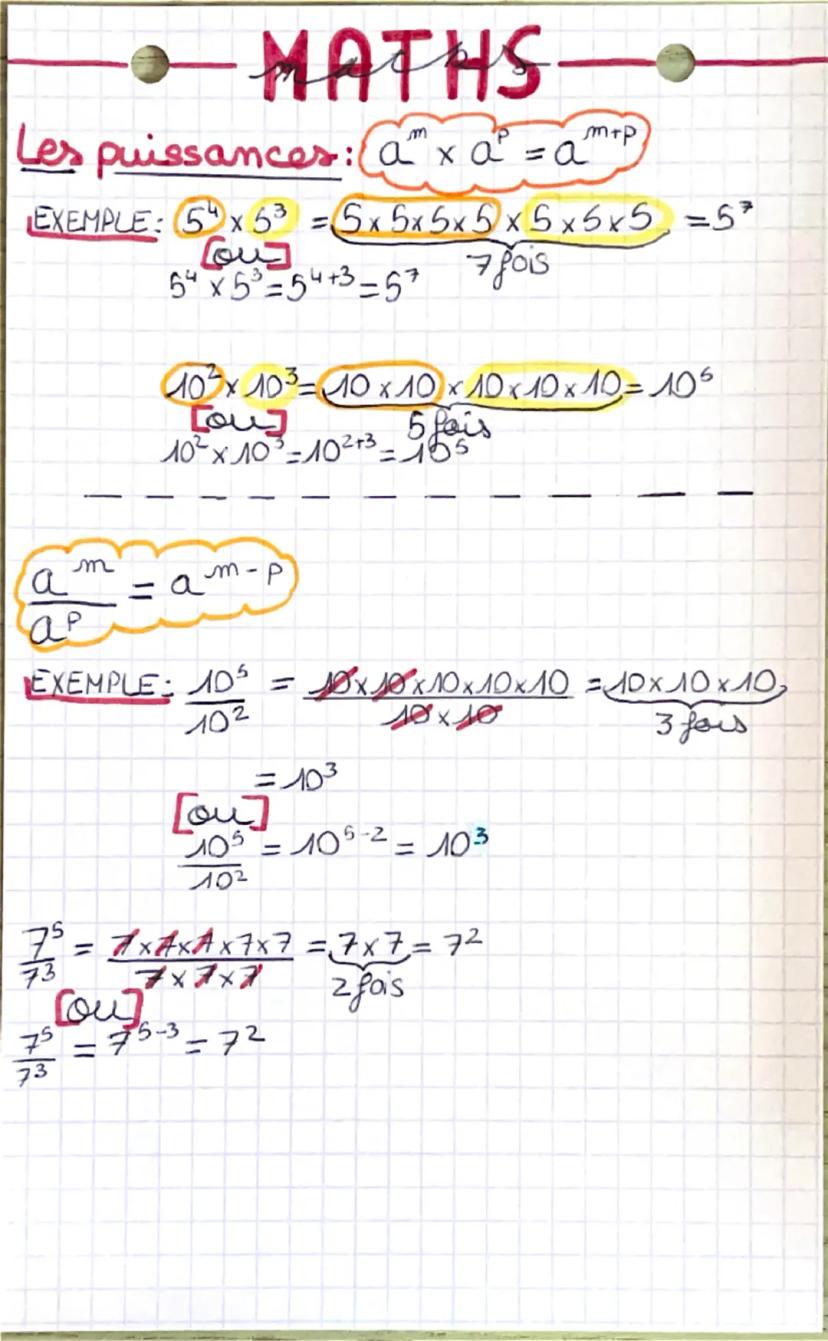 MATHS
maths
Les puissances: a^m x a^p = a^{m+p}
EXEMPLE: 5⁴ x 5³ = 5 x 5 x 5 x 5 x 5 x 5 x 5 = 5⁷
[ou] 7 fois
5⁴ x 5³ = 5⁴⁺³ = 5⁷
10² x 10³ = 10 x 10 x 10 x 10 x 10 = 10⁵
[ou] 5 fois
10² x 10³ = 10²⁺³ = 10⁵
a^m/a^p = a^{m-p}
EXEMPLE: 10⁵/10² = 10x10x10x10x10/10x10 = 10x10x10
3 fois
= 10³
[ou]
10⁵/10² = 10⁵⁻² = 10³
7⁵/7³ = 7x7x7x7x7/7x7x7 = 7x7 = 7²
2 fois
[ou]
7⁵/7³ = 7⁵⁻³ = 7²